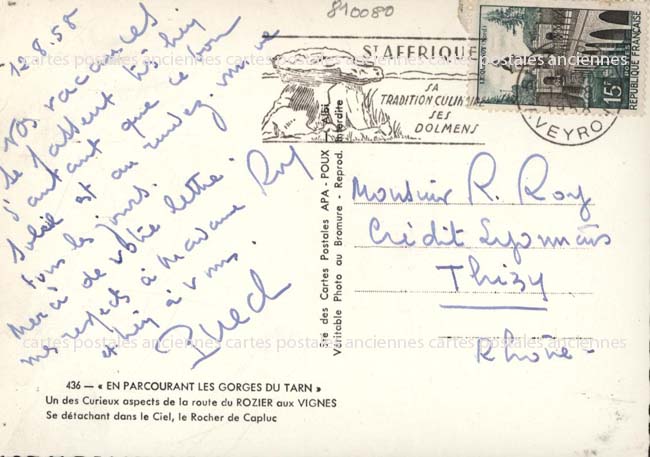 810080
12.8.58
Vos vacances
se passent très bien
d'autant que ce bon
Soleil est au rendez-vous
tous les jours.
Merci de votre lettre.
mes respects à Madame Roy
et bien à vous.
Puech
ST AFFRIQUE
SA
TRADITION CULINAIRE
SES
DOLMENS
15F
POSTES
REPUBLIQUE FRANÇAISE
AVEYRON
Sté des Cartes Postales APA - POUX - Albi
Véritable Photo au Bromure - Reprod. Interdite
Monsieur R. Roy
Crédit Lyonnais
Thizy
Rhône -
436 — « EN PARCOURANT LES GORGES DU TARN »
Un des Curieux aspects de la route du ROZIER aux VIGNES
Se détachant dans le Ciel, le Rocher de Capluc
cartes postales anciennes cartes postales anciennes cartes postales anciennes
cartes postales anciennes cartes postales anciennes cartes postales anciennes
cartes postales anciennes cartes postales anciennes cartes postales anciennes